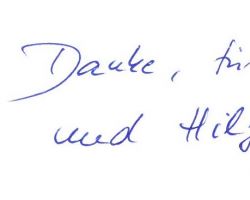 Danke, für
und Hilf